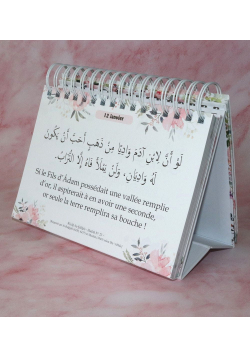 12 Janvier
لَوْ أَنَّ لِابْنِ آدَمَ وَادِيًا مِنْ ذَهَبٍ أَحَبَّ أَنْ يَكُونَ
لَهُ وَادِيَانِ، وَلَنْ يَمْلَأَ فَاهُ إِلَّا التُّرَابُ.
Si le Fils d'Âdam possédait une vallée remplie
d'or, il aspirerait à en avoir une seconde,
or seule la terre remplira sa bouche !